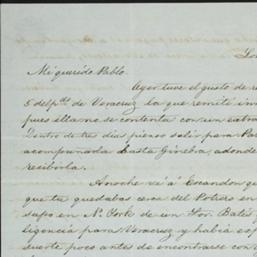 Lo
Mi querido Pablo.
Ayer tuve el gusto de re
5 del pdo. de Veracruz la que remití in
pues ella no se contenta con un estra
Dentro de tres dias pienso salir para Par
acompañarla hasta Ginebra, adonde
recibirla.
Anoche ví á Escandon, q
que tu quedabas cerca del Potrero en
supo en N. York de un Sor. Bates
ligencia para Veracruz y habia esp
suerte poco antes de encontrarse con